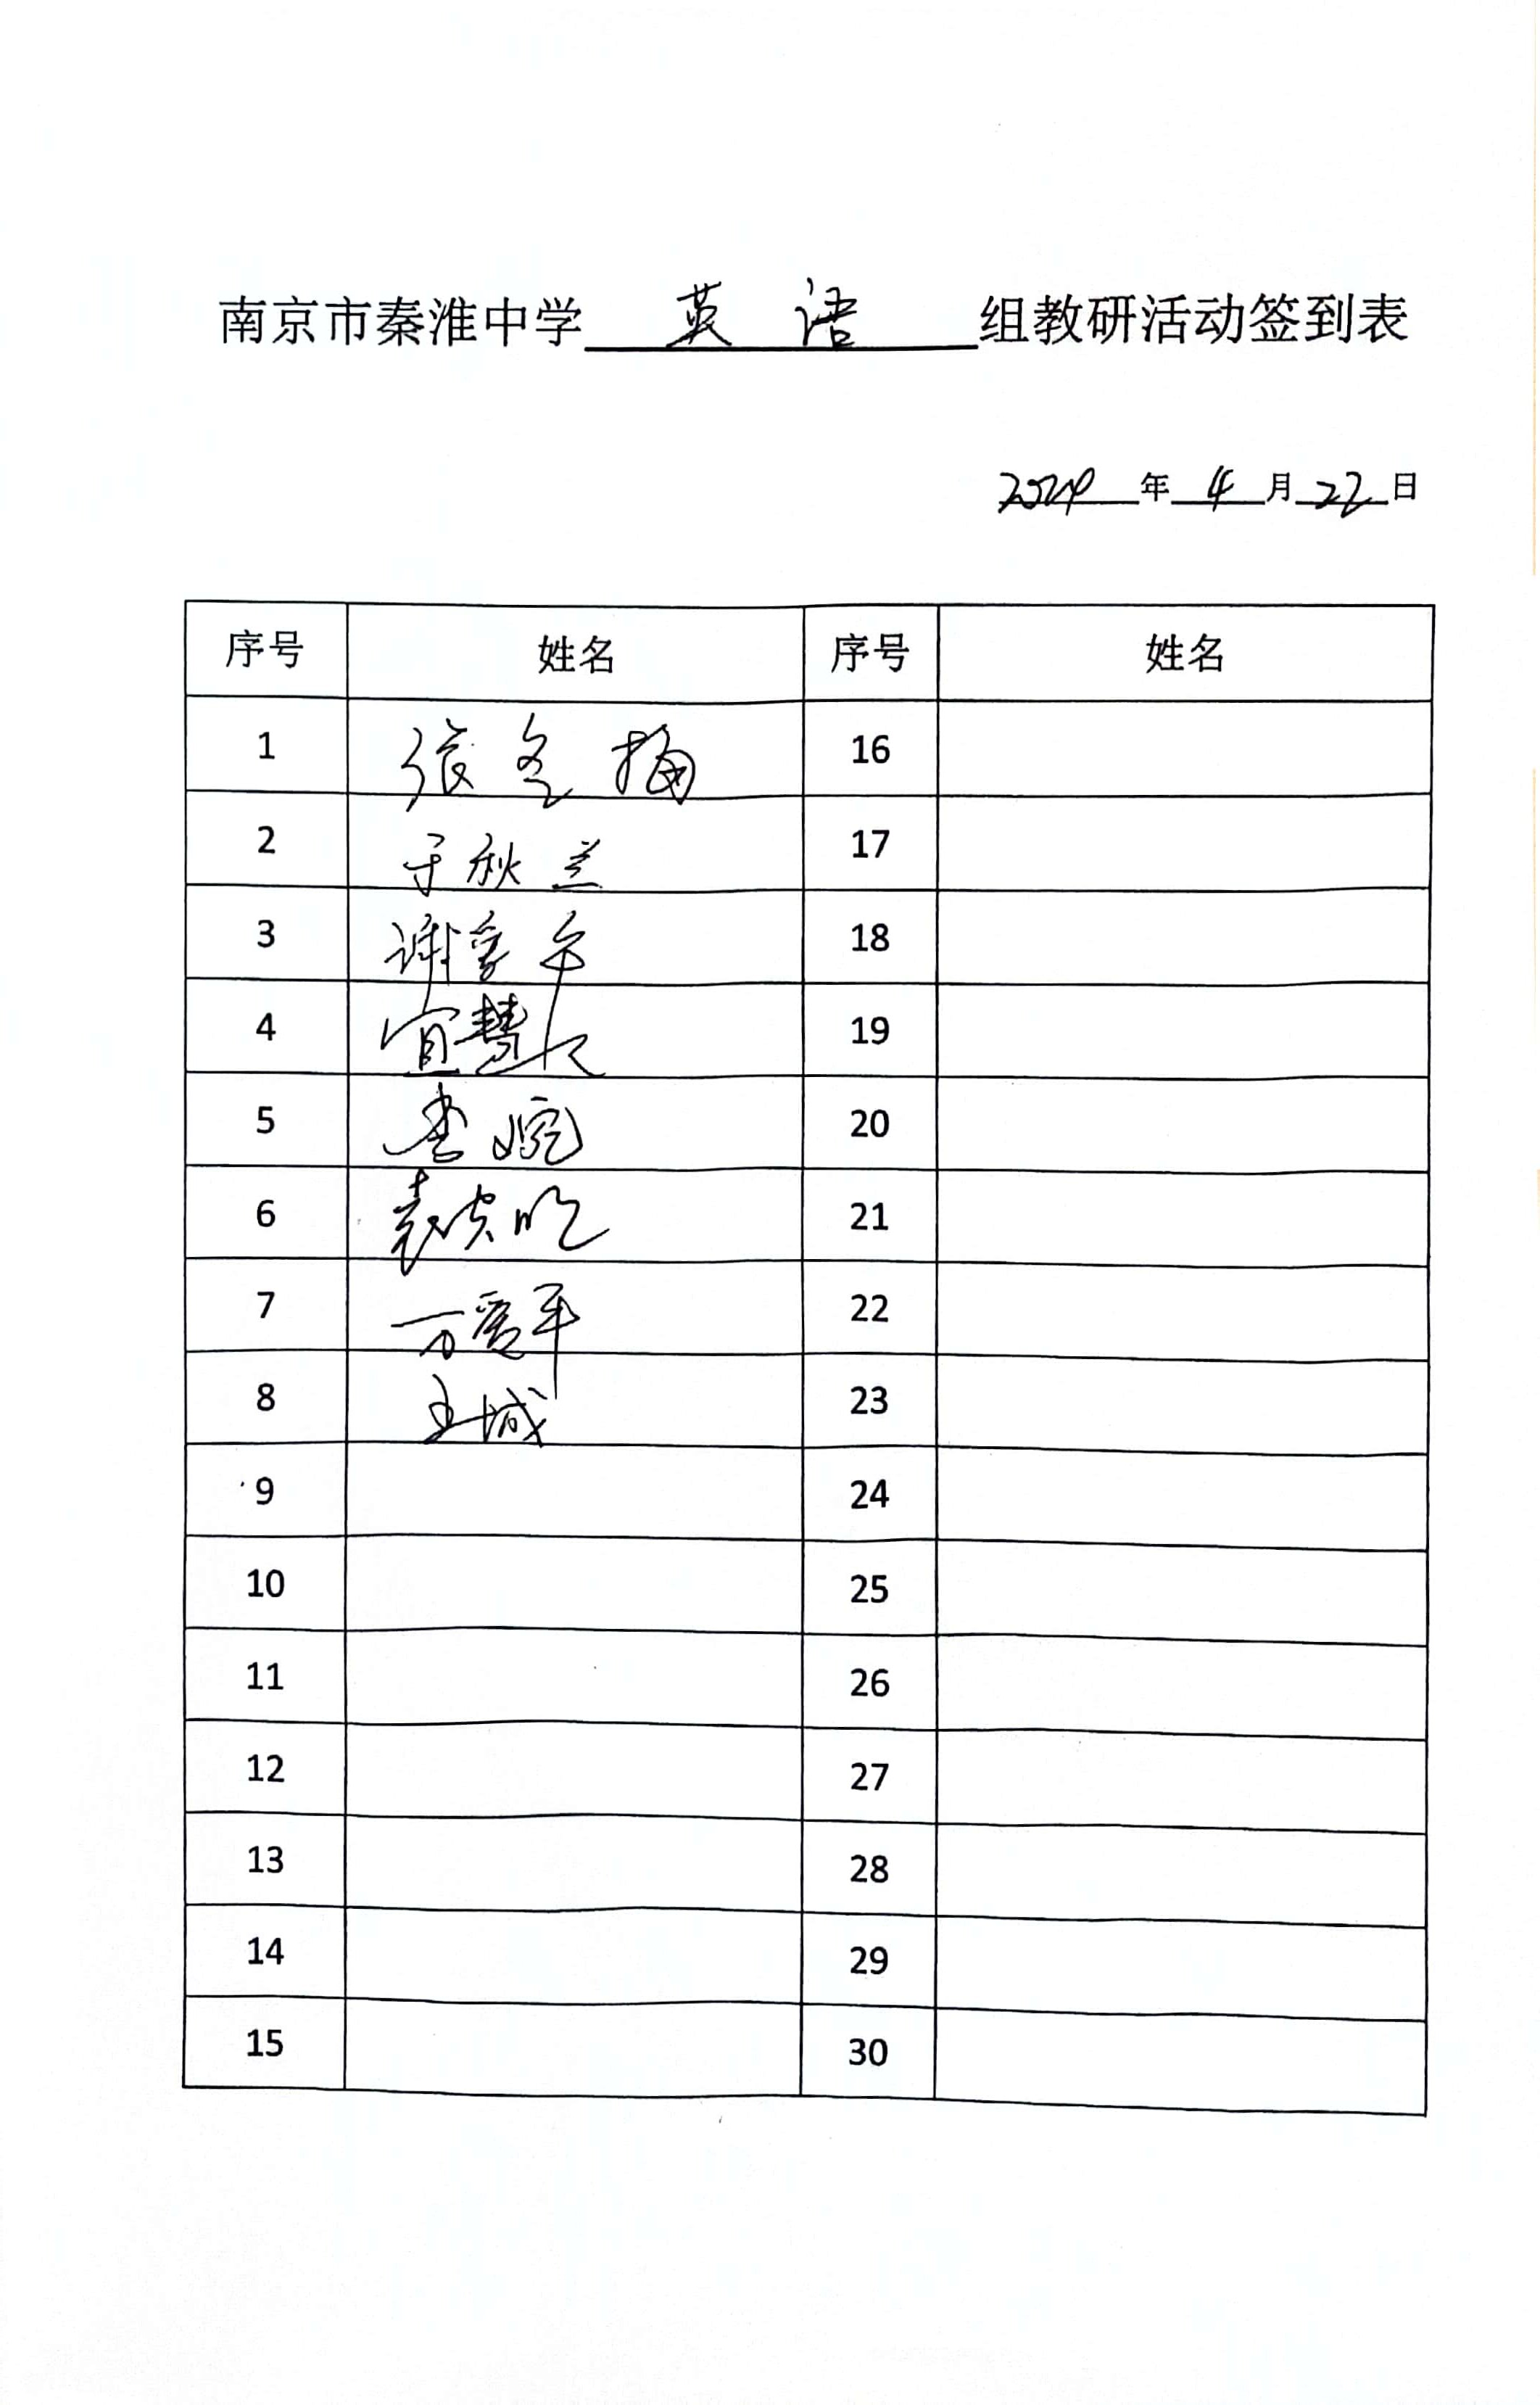 南京市秦淮中学 英语 组教研活动签到表
2024 年 4 月 22 日
序号 姓名 序号 姓名
1 张冬梅 16
2 于秋兰 17
3 谢 18
4 宣慧 19
5 李婉 20
6 袁 21
7 万爱军 22
8 王城 23
9 24
10 25
11 26
12 27
13 28
14 29
15 30